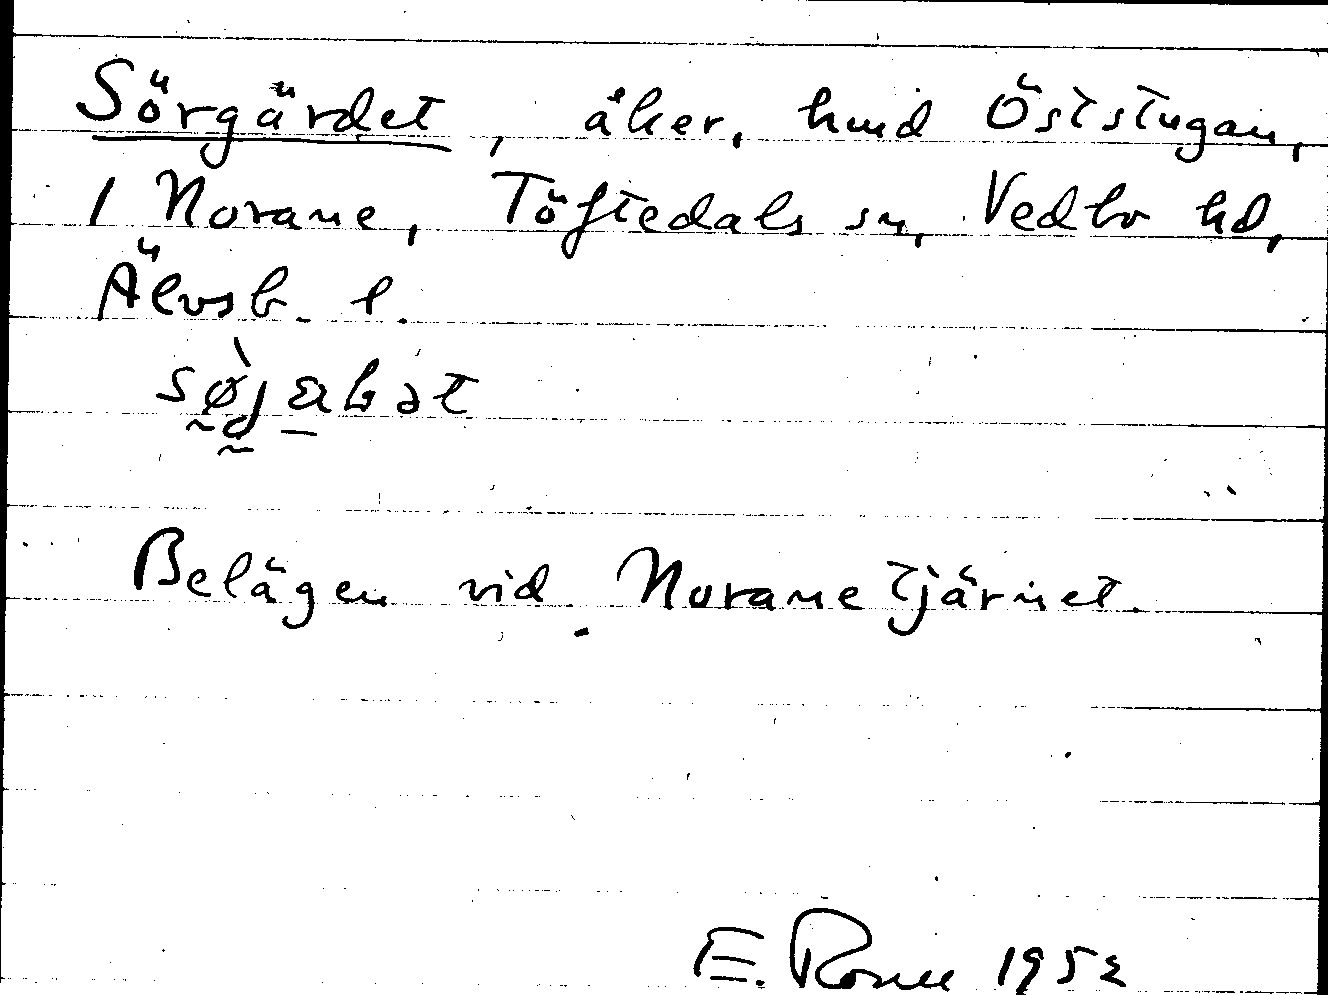 Sörgärdet, åker, hmd Öststugan,
1 Norane, Töftedals sn, Vedbo hd,
Älvsb. l.
Belägen vid Noranetjärnet.
E. 1952